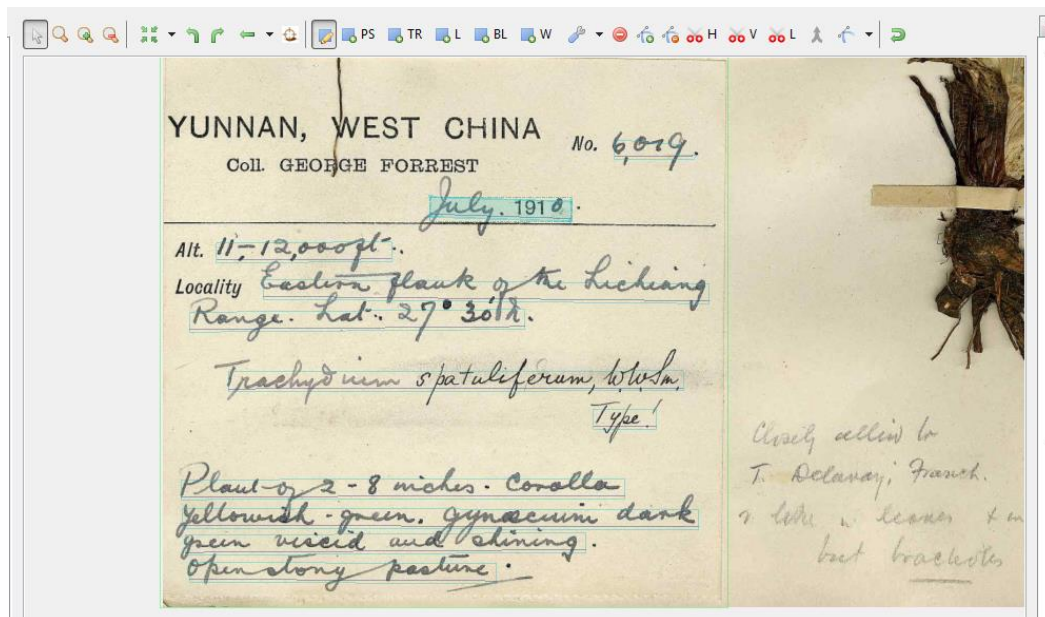 PS TR L BL W H V L
YUNNAN, WEST CHINA
No. 6,019.
Coll. GEORGE FORREST
July. 1910.
Alt. 11-12,000ft.
Locality Eastern flank of the Lichiang
Range. Lat. 27° 30' N.
Trachydium spatuliferum, W.W.Sm.
Type!
Plant of 2-8 inches. Corolla
yellowish-green. Gynæcium dark
green viscid and shining.
Open stony pasture.
Closely allied to
T. Delavayi, Franch.
leaves
but bracteoles